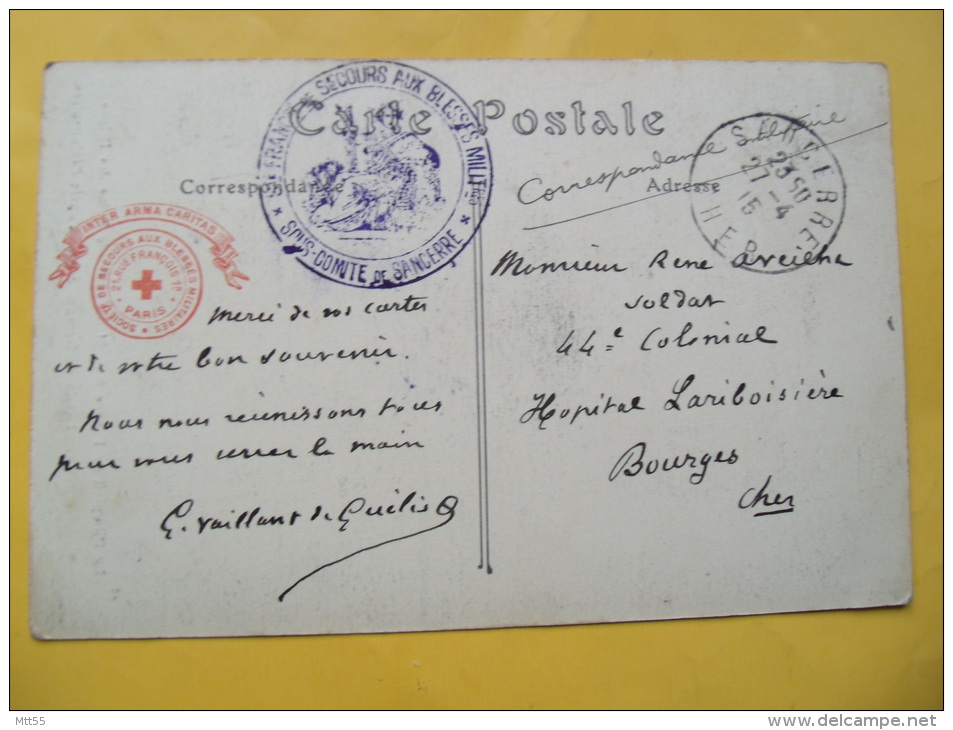 Carte Postale
Sté FRANÇAISE DE SECOURS AUX BLESSES MILITRES
* SOUS-COMITE DE SANCERRE *
Correspondance
Correspondance Militaire
Adresse
SANCERRE
23 50
27-4
15
HE
INTER ARMA CARITAS
SOCIÉTÉ DE SECOURS AUX BLESSÉS MILITAIRES
RUE FRANÇOIS 1er
PARIS
Merci de vos cartes
et de votre bon souvenir.
Nous nous réunissons tous
pour vous serrer la main
G. Vaillant de Guélis
Monsieur René
soldat
44e Colonial
Hopital Lariboisière
Bourges
Cher
Mtt55
www.delcampe.net